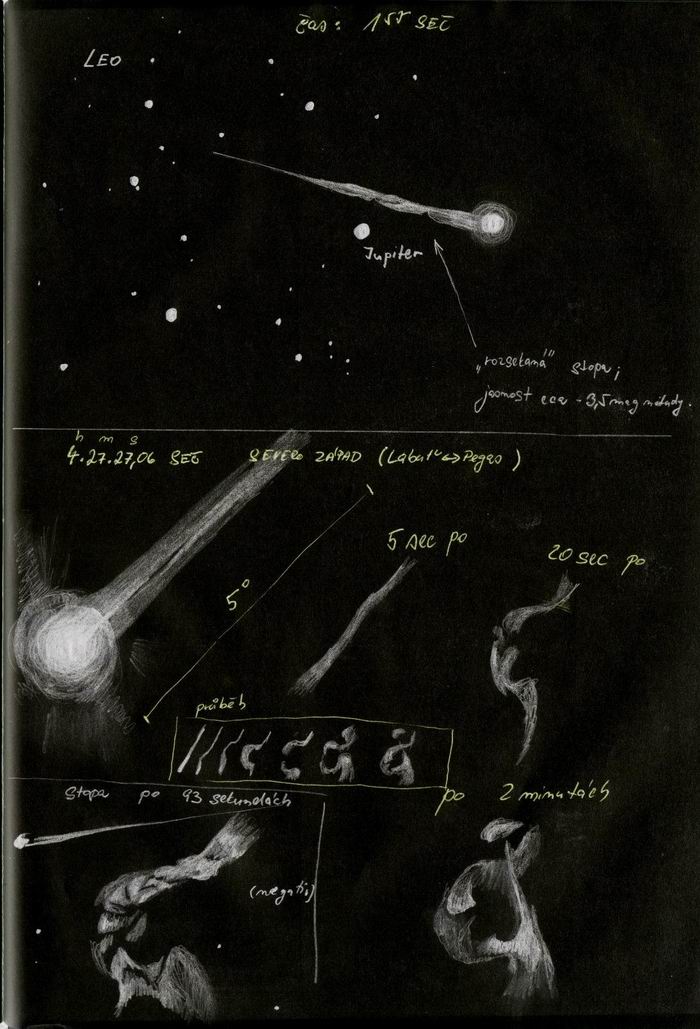 čas: 155 SEČ
LEO
Jupiter
„rozsekaná" stopa;
jasnost cca -3,5 mag
h m s
4.27.27,06 SEČ SEVERO ZÁPAD (Labuť ↔ Pegas)
5 sec po
20 sec po
5°
průběh
Stopa po 93 sekundách
po 2 minutách
(negativ)